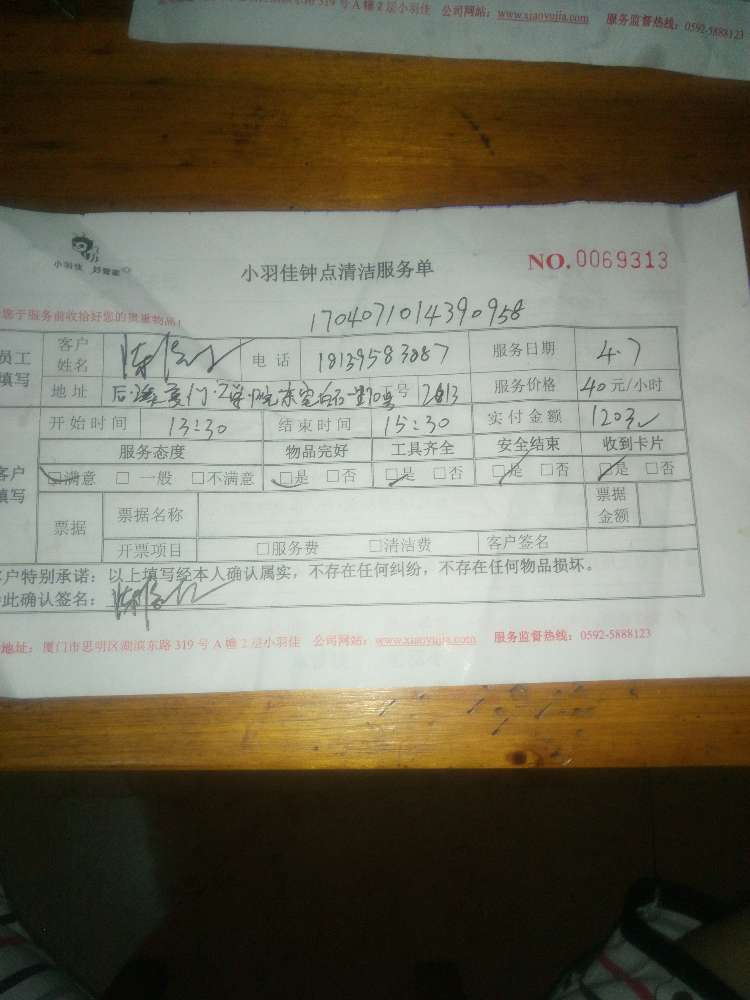 319号A幢2层小羽佳 公司网站：www.xiaoyujia.com 服务监督热线：0592-5888123
小羽佳 好管家
小羽佳钟点清洁服务单 NO.0069313
您于服务前收拾好您的贵重物品！
1704071014390958
员工填写 客户姓名 陈 电话 18139583887 服务日期 4.7
地址 号 2613 服务价格 40元/小时
开始时间 13:30 结束时间 15:30 实付金额
服务态度 物品完好 工具齐全 安全结束 收到卡片
客户填写 □满意 □一般 □不满意 □是 □否 □是 □否 □是 □否 □是 □否
票据 票据名称 票据金额
开票项目 □服务费 □清洁费 客户签名
客户特别承诺：以上填写经本人确认属实，不存在任何纠纷，不存在任何物品损坏。
此确认签名：陈
地址：厦门市思明区湖滨东路319号A幢2层小羽佳 公司网站：www.xiaoyujia.com 服务监督热线：0592-5888123